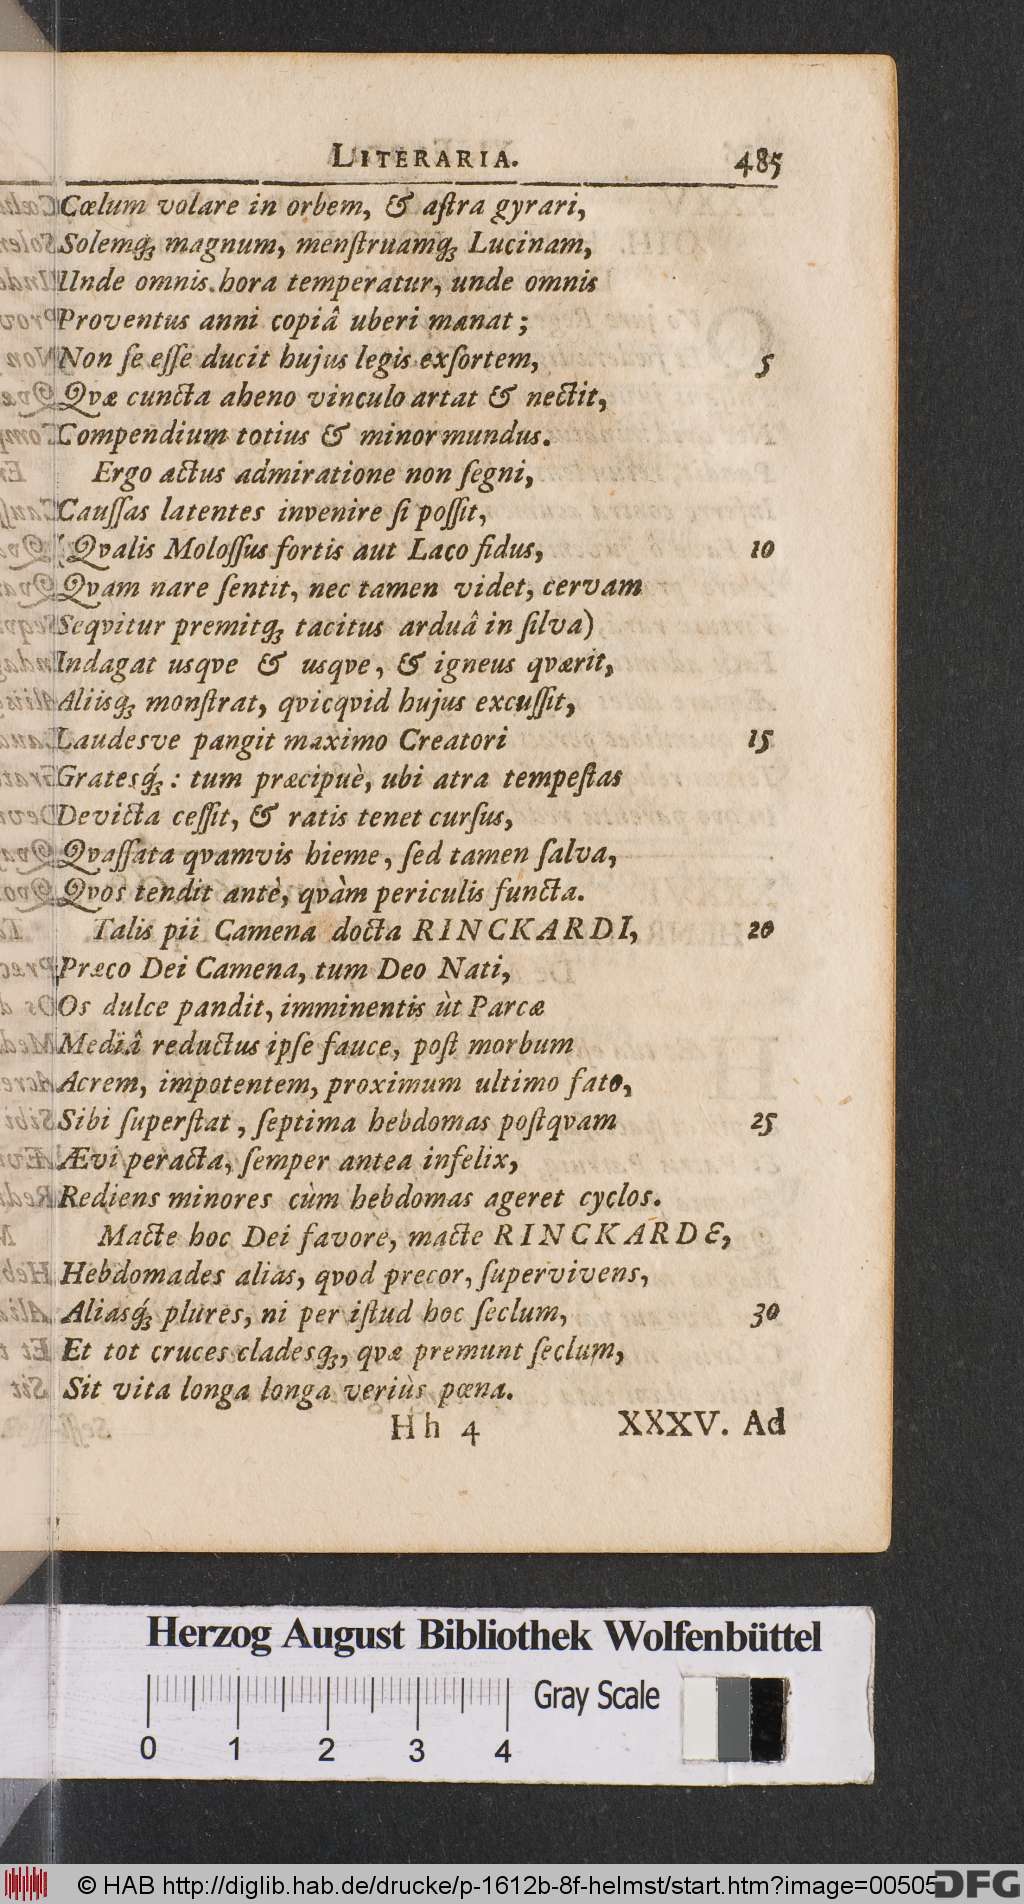 LITERARIA. 485
Cœlum volare in orbem, & aſtra gyrari,
Solemq; magnum, menſtruamq; Lucinam,
Unde omnis hora temperatur, unde omnis
Proventus anni copiâ uberi manat;
Non ſe eſſe ducit hujus legis exſortem, 5
Qvæ cuncta aheno vinculo artat & nectit,
Compendium totius & minor mundus.
Ergo actus admiratione non ſegni,
Cauſſas latentes invenire ſi poſſit,
(Qvalis Moloſſus fortis aut Laco fidus, 10
Qvam nare ſentit, nec tamen videt, cervam
Seqvitur premitq; tacitus arduâ in ſilva)
Indagat usqve & usqve, & igneus qværit,
Aliisq; monſtrat, qvicqvid hujus excuſſit,
Laudesve pangit maximo Creatori 15
Gratesq́;: tum præcipuè, ubi atra tempeſtas
Devicta ceſſit, & ratis tenet curſus,
Qvaſſata qvamvis hieme, ſed tamen ſalva,
Qvos tendit antè, qvàm periculis functa.
Talis pii Camena docta RINCKARDI, 20
Præco Dei Camena, tum Deo Nati,
Os dulce pandit, imminentis ùt Parcæ
Mediâ reductus ipſe fauce, poſt morbum
Acrem, impotentem, proximum ultimo fato,
Sibi ſuperſtat, ſeptima hebdomas poſtqvam 25
Ævi peracta, ſemper antea infelix,
Rediens minores cùm hebdomas ageret cyclos.
Macte hoc Dei favore, macte RINCKARDE,
Hebdomades alias, qvod precor, ſupervivens,
Aliasq́; plures, ni per iſtud hoc ſeclum, 30
Et tot cruces cladesq;, qvæ premunt ſeclum,
Sit vita longa longa veriùs pœna.
Hh 4 XXXV. Ad
Herzog August Bibliothek Wolfenbüttel
Gray Scale
0 1 2 3 4
© HAB http://diglib.hab.de/drucke/p-1612b-8f-helmst/start.htm?image=00505
DFG